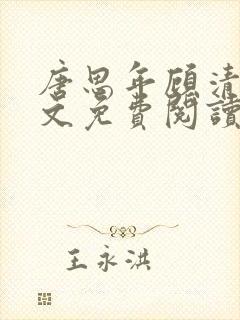 唐思年顾清
文免費閱讀
王永洪